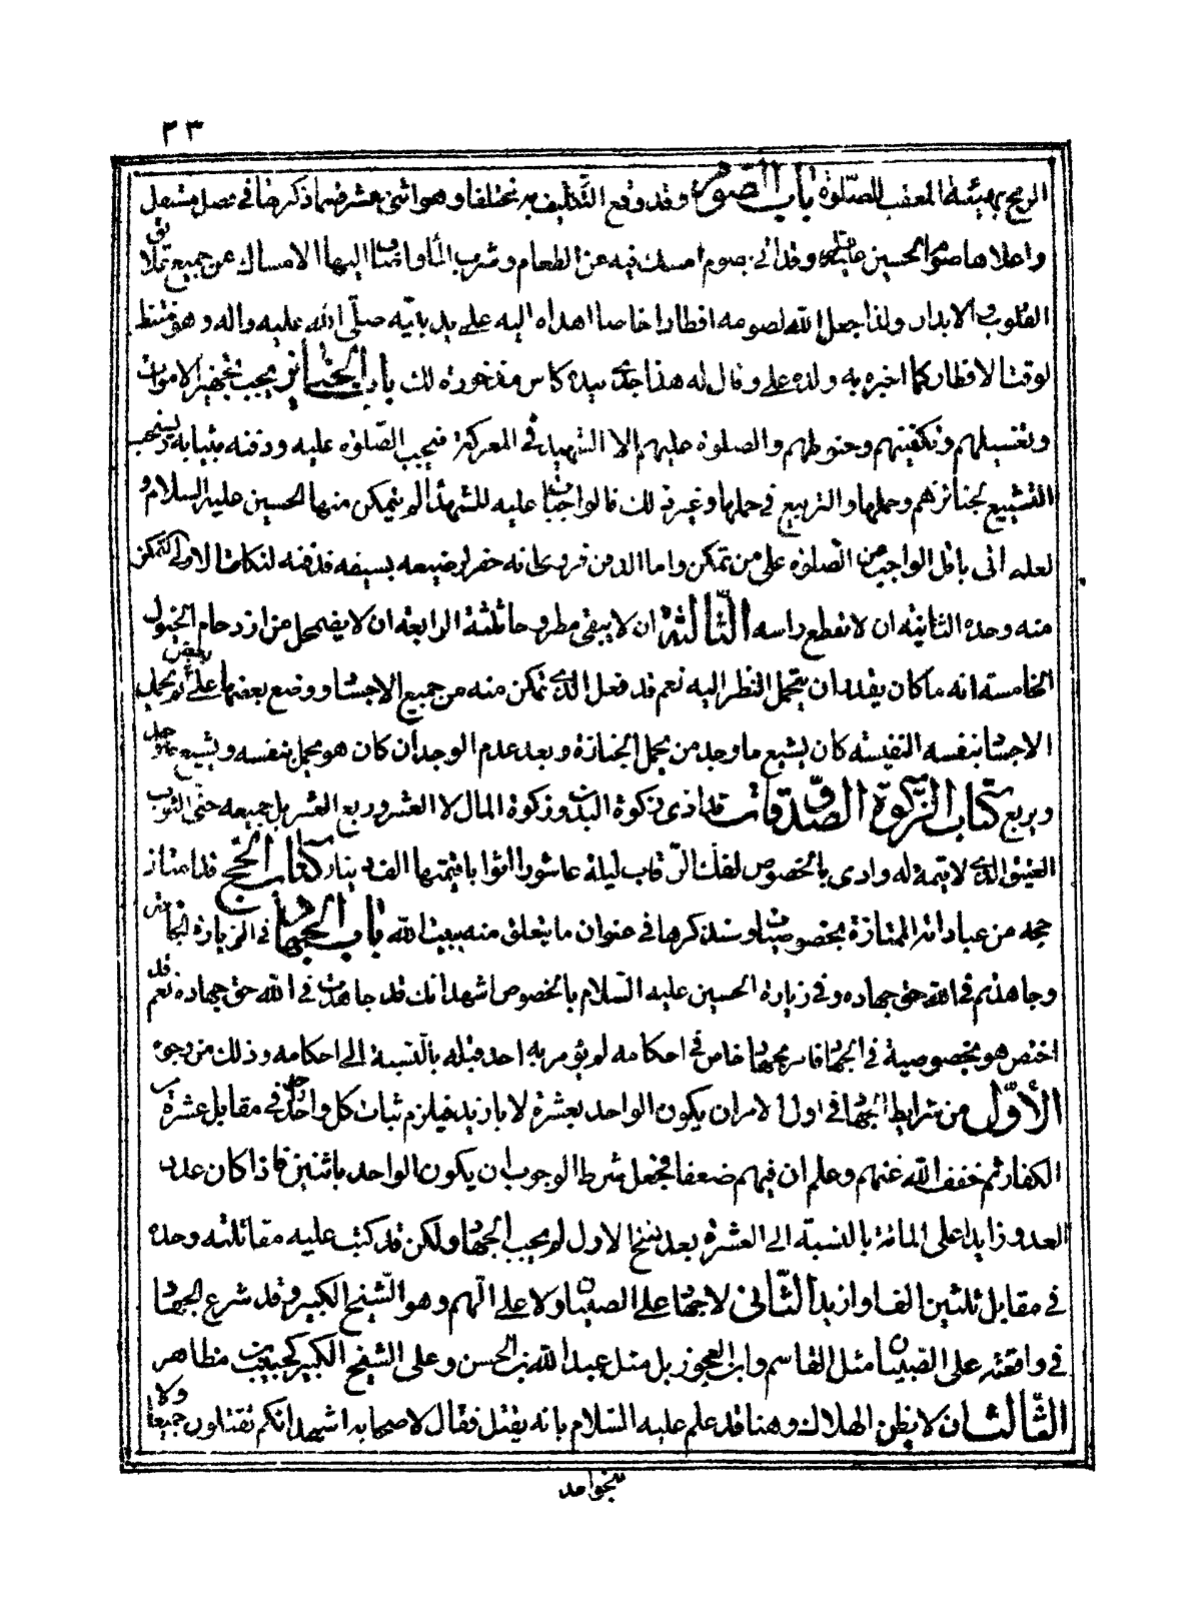 ٢٣
الريح بهيئة المعقب للصلوة باب الصوم وقد وقع التكليف به مختلفا وهو اثنى عشر قسما ذكرناها في فصل مستقل
واعلاها صوم الحسين عليه السلام وقد اتى بصوم امسك فيه عن الطعام وشرب الماء واضاف اليها الامساك عن جميع علائق
القلوب والابدان ولذا جعل الله لصومه افطارا خاصا اهداه اليه على يد نبيّه صلّى الله عليه واله وهو منتظر
لوقت الافطار كما اخبره به ولده على وقال له هذا جدّى بيده كاس مذخورة لك باب الجنائز يجب تجهيز الاموات
وتغسيلهم وتكفينهم وحنوطهم والصلوة عليهم الا الشهيد في المعركة فيجب الصّلوة عليه ودفنه بثيابه ويستحب
التشييع لجنائزهم وحملها والتربيع في حملها وغير ذلك فالواجبات عليه للشهداء لم يتمكن منها الحسين عليه السلام و
لعله اتى باقل الواجب من الصلوة على من تمكن واما الدفن فروى انه حفر لرضيعه بسيفه فدفنه لنكات الاولى التمكن
منه وحده الثانية ان لا تقطع راسه الثّالثة ان لا يبقى مطروحا ثلثة الرابعة ان لا يضمحل من ازدحام الخيول
الخامسة انه ما كان يقدر ان يتحمل النظر اليه نعم قد فعل الذى تمكن منه من جميع الاجساد ووضع بعضها على بعض ثم يحمل
الاجساد بنفسه النفيسة كان يشيع ما وجد من يحمل الجنازة وبعد عدم الوجدان كان هو يحمل بنفسه ويشيع
ويربع كتاب الزّكوة والصّدقات قد ادّى زكوة البدن وزكوة المال لا العشر وربع العشر بل جميعه حتّى الثوب
العتيق الذى لا قيمة له وادى بالخصوص لفك الرّقاب ليلة عاشورا اثوابا قيمتها الف دينار كتاب الحجّ قد امتاز
حجه من عباداته الممتازة بخصوصيات وسنذكرها في عنوان ما يتعلق منه ببيت الله باب الجهاد في الزيارة الجامعة
وجاهدتم في الله حق جهاده وفي زيارة الحسين عليه السّلام بالخصوص اشهد انك قد جاهدت في الله حق جهاده نعم قد
اختص هو بخصوصية في الجهاد فامر بجهاد خاص في احكامه لم يؤمر به احد قبله بالنّسبة الى احكامه وذلك من وجوه
الأوّل من شرايط الجهاد في اول الامر ان يكون الواحد بعشرة لا بازيد فيلزم ثبات كل واحد في مقابل عشرة من
الكفار ثم خفف الله عنهم وعلم ان فيهم ضعفا فجعل شرط الوجوب ان يكون الواحد باثنين فاذا كان عدد
العدو زايدا على المائة بالنسبة الى العشرة بعد نسخ الاول لم يجب الجهاد ولكن قد كتب عليه مقاتلته وحده
في مقابل ثلثين الف او ازيد الثّانى لا جهاد على الصبيان ولا على الهم وهو الشّيخ الكبير وقد شرع الجهاد
في واقعته على الصّبيان مثل القاسم وابن العجوز بل مثل عبد الله بن الحسن وعلى الشيخ الكبير كحبيب بن مظاهر
الثّالث ان لا يظن الهلاك وهنا قد علم عليه السّلام بانه يقتل فقال لاصحابه اشهد انكم تقتلون جميعا ولا
ينجو احد